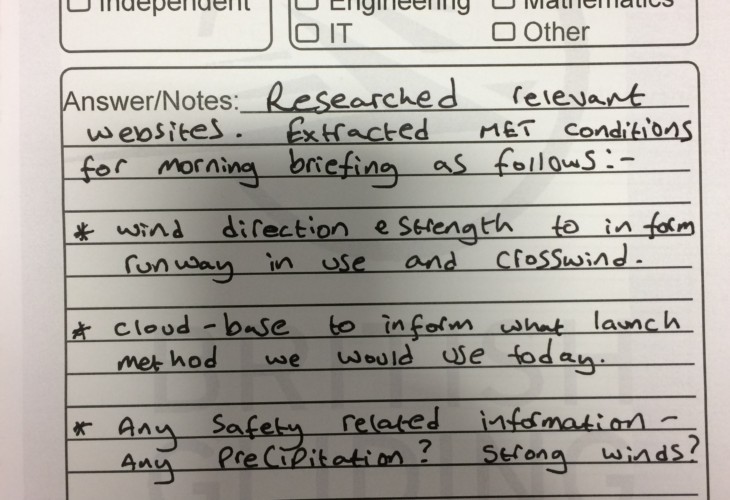 Independent
Engineering
Mathematics
IT
Other
Answer/Notes: Researched relevant
websites. Extracted MET conditions
for morning briefing as follows:-
* wind direction & strength to inform
runway in use and crosswind.
* cloud-base to inform what launch
method we would use today.
* Any Safety related information -
Any Precipitation? Strong winds?
BRITISH
GLIDING